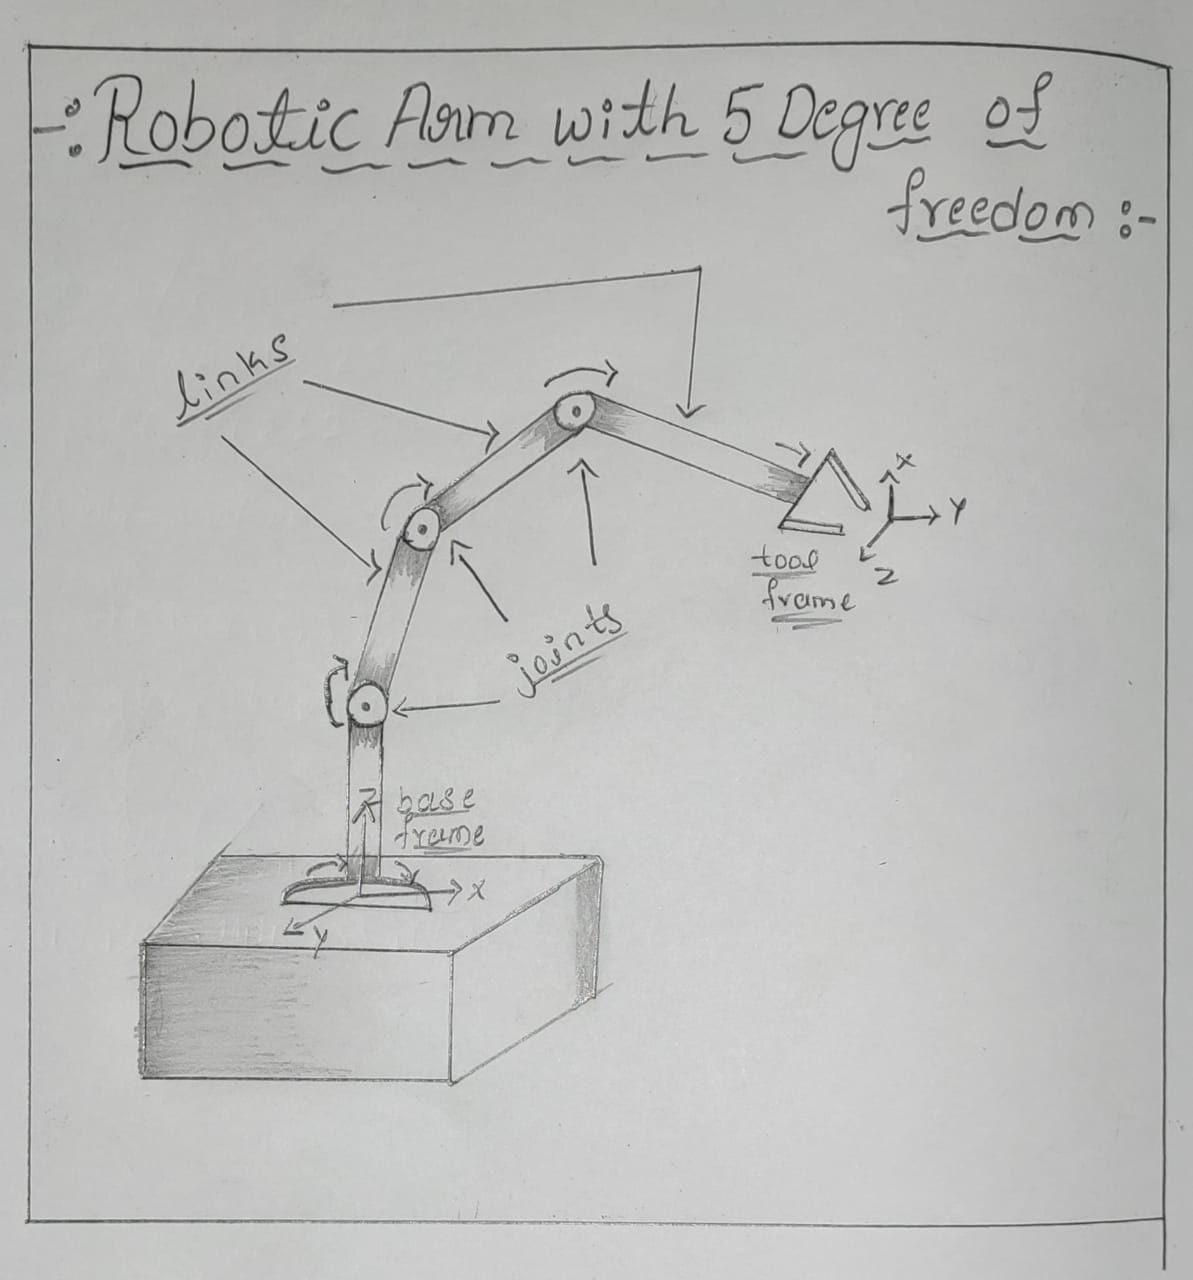 -: Robotic Arm with 5 Degree of
freedom :-
links
X
Y
Z
tool
frame
joints
Z
base
frame
X
Y